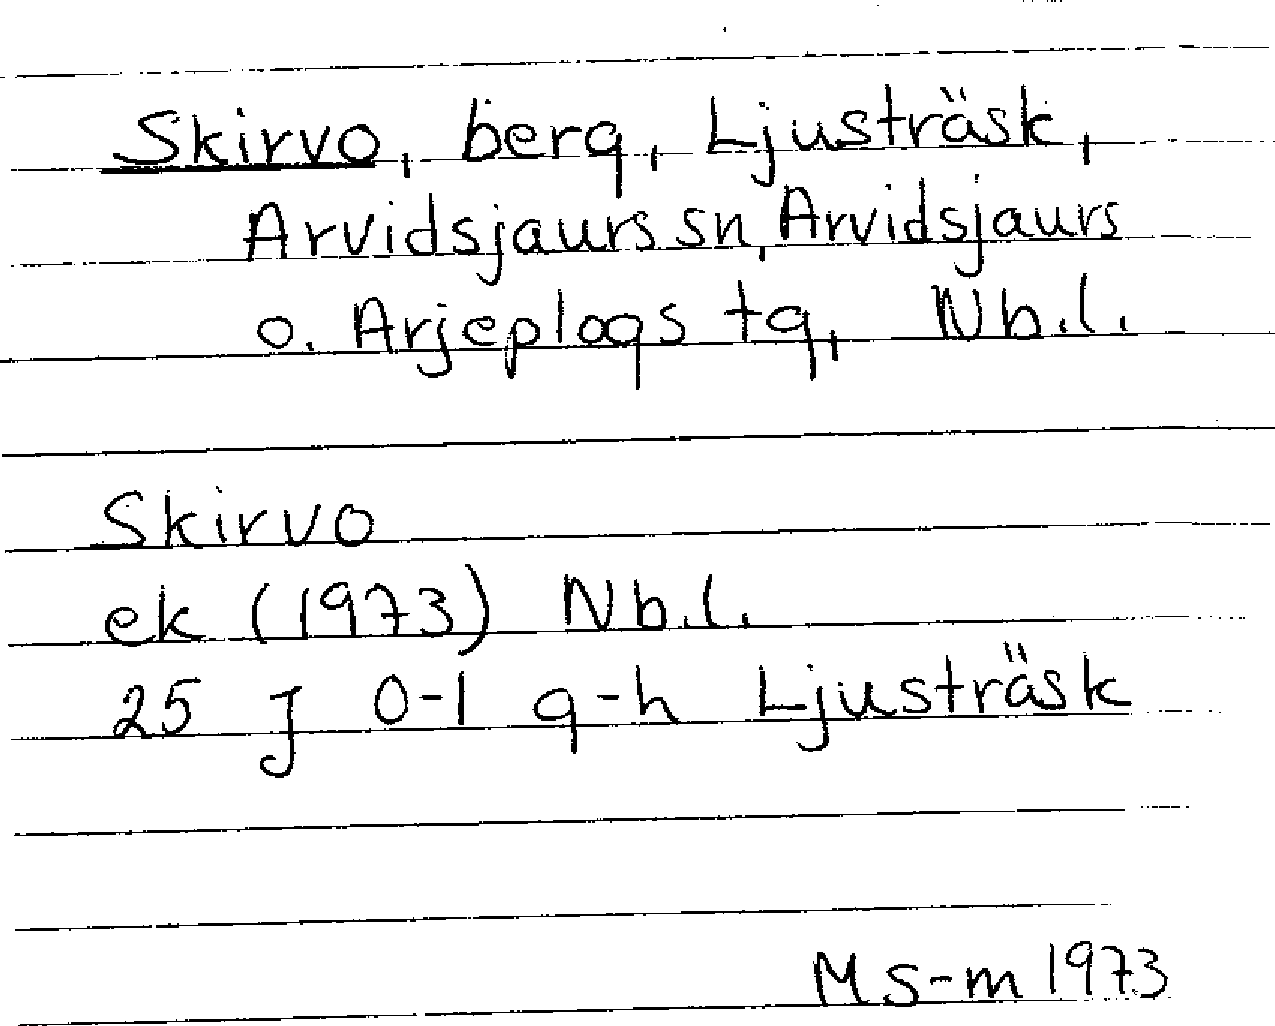 Skirvo, berg, Ljusträsk,
Arvidsjaurs sn, Arvidsjaurs
o. Arjeplogs tg, Nb.l.
Skirvo
ek (1973) Nb.l.
25 J 0-1 g-h Ljusträsk
M S-m 1973